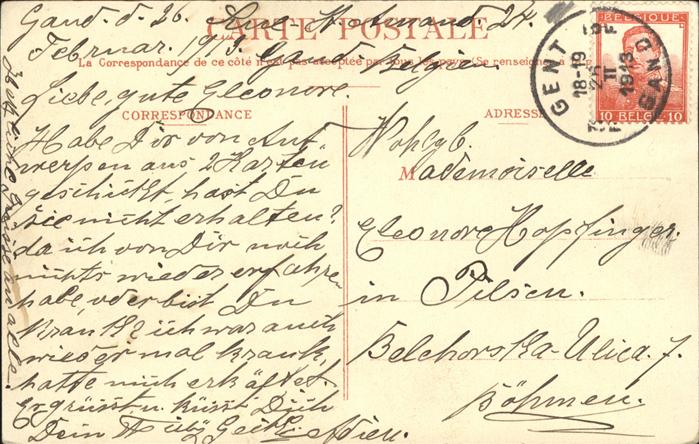 CARTE POSTALE
Gand. d. 26.
24.
Februar. 1913. Gand Belgien.
La Correspondance de ce côté n'est pas acceptée par tous les pays (Se renseigner à la
Liebe, gute Eleonore.
CORRESPONDANCE
Habe Dir von Ant
werpen aus 2 Karten
geschickt, hast Du
sie nicht erhalten?
da ich von Dir noch
nichts wieder erfahren
habe, oder bist Du
krank? ich war auch
wieder mal krank,
hatte mich erkältet.
Es grüsst u. küsst Dich
Dein Adieu.
alle.
ADRESSE
Wohlgb.
Mademoiselle
Eleonore Hopfinger.
in Pilsen.
Belchorska-Ulica 7.
Böhmen.
BELGIQUE
10 BELGIE 10
GENT
18-19
II
1913
GAND